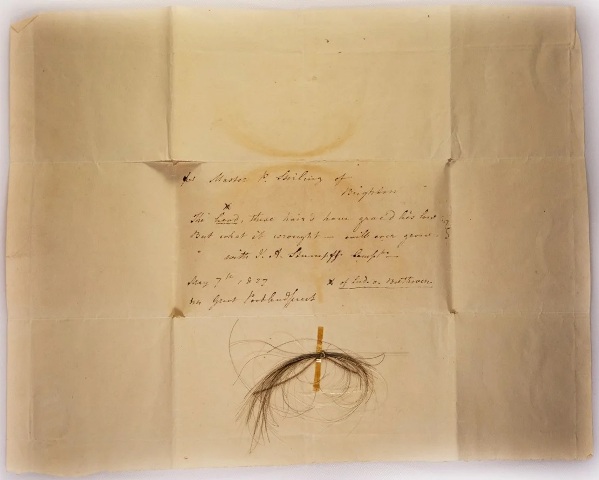 for Master P. Stirling of
Brighton
x
The head, these hair's have grac'd lies low
But what it wrought – will ever grow
with J. A. Stumpff Compts –
May 7th 1827
44 Great Portland Street
x of Lud. v. Beethoven